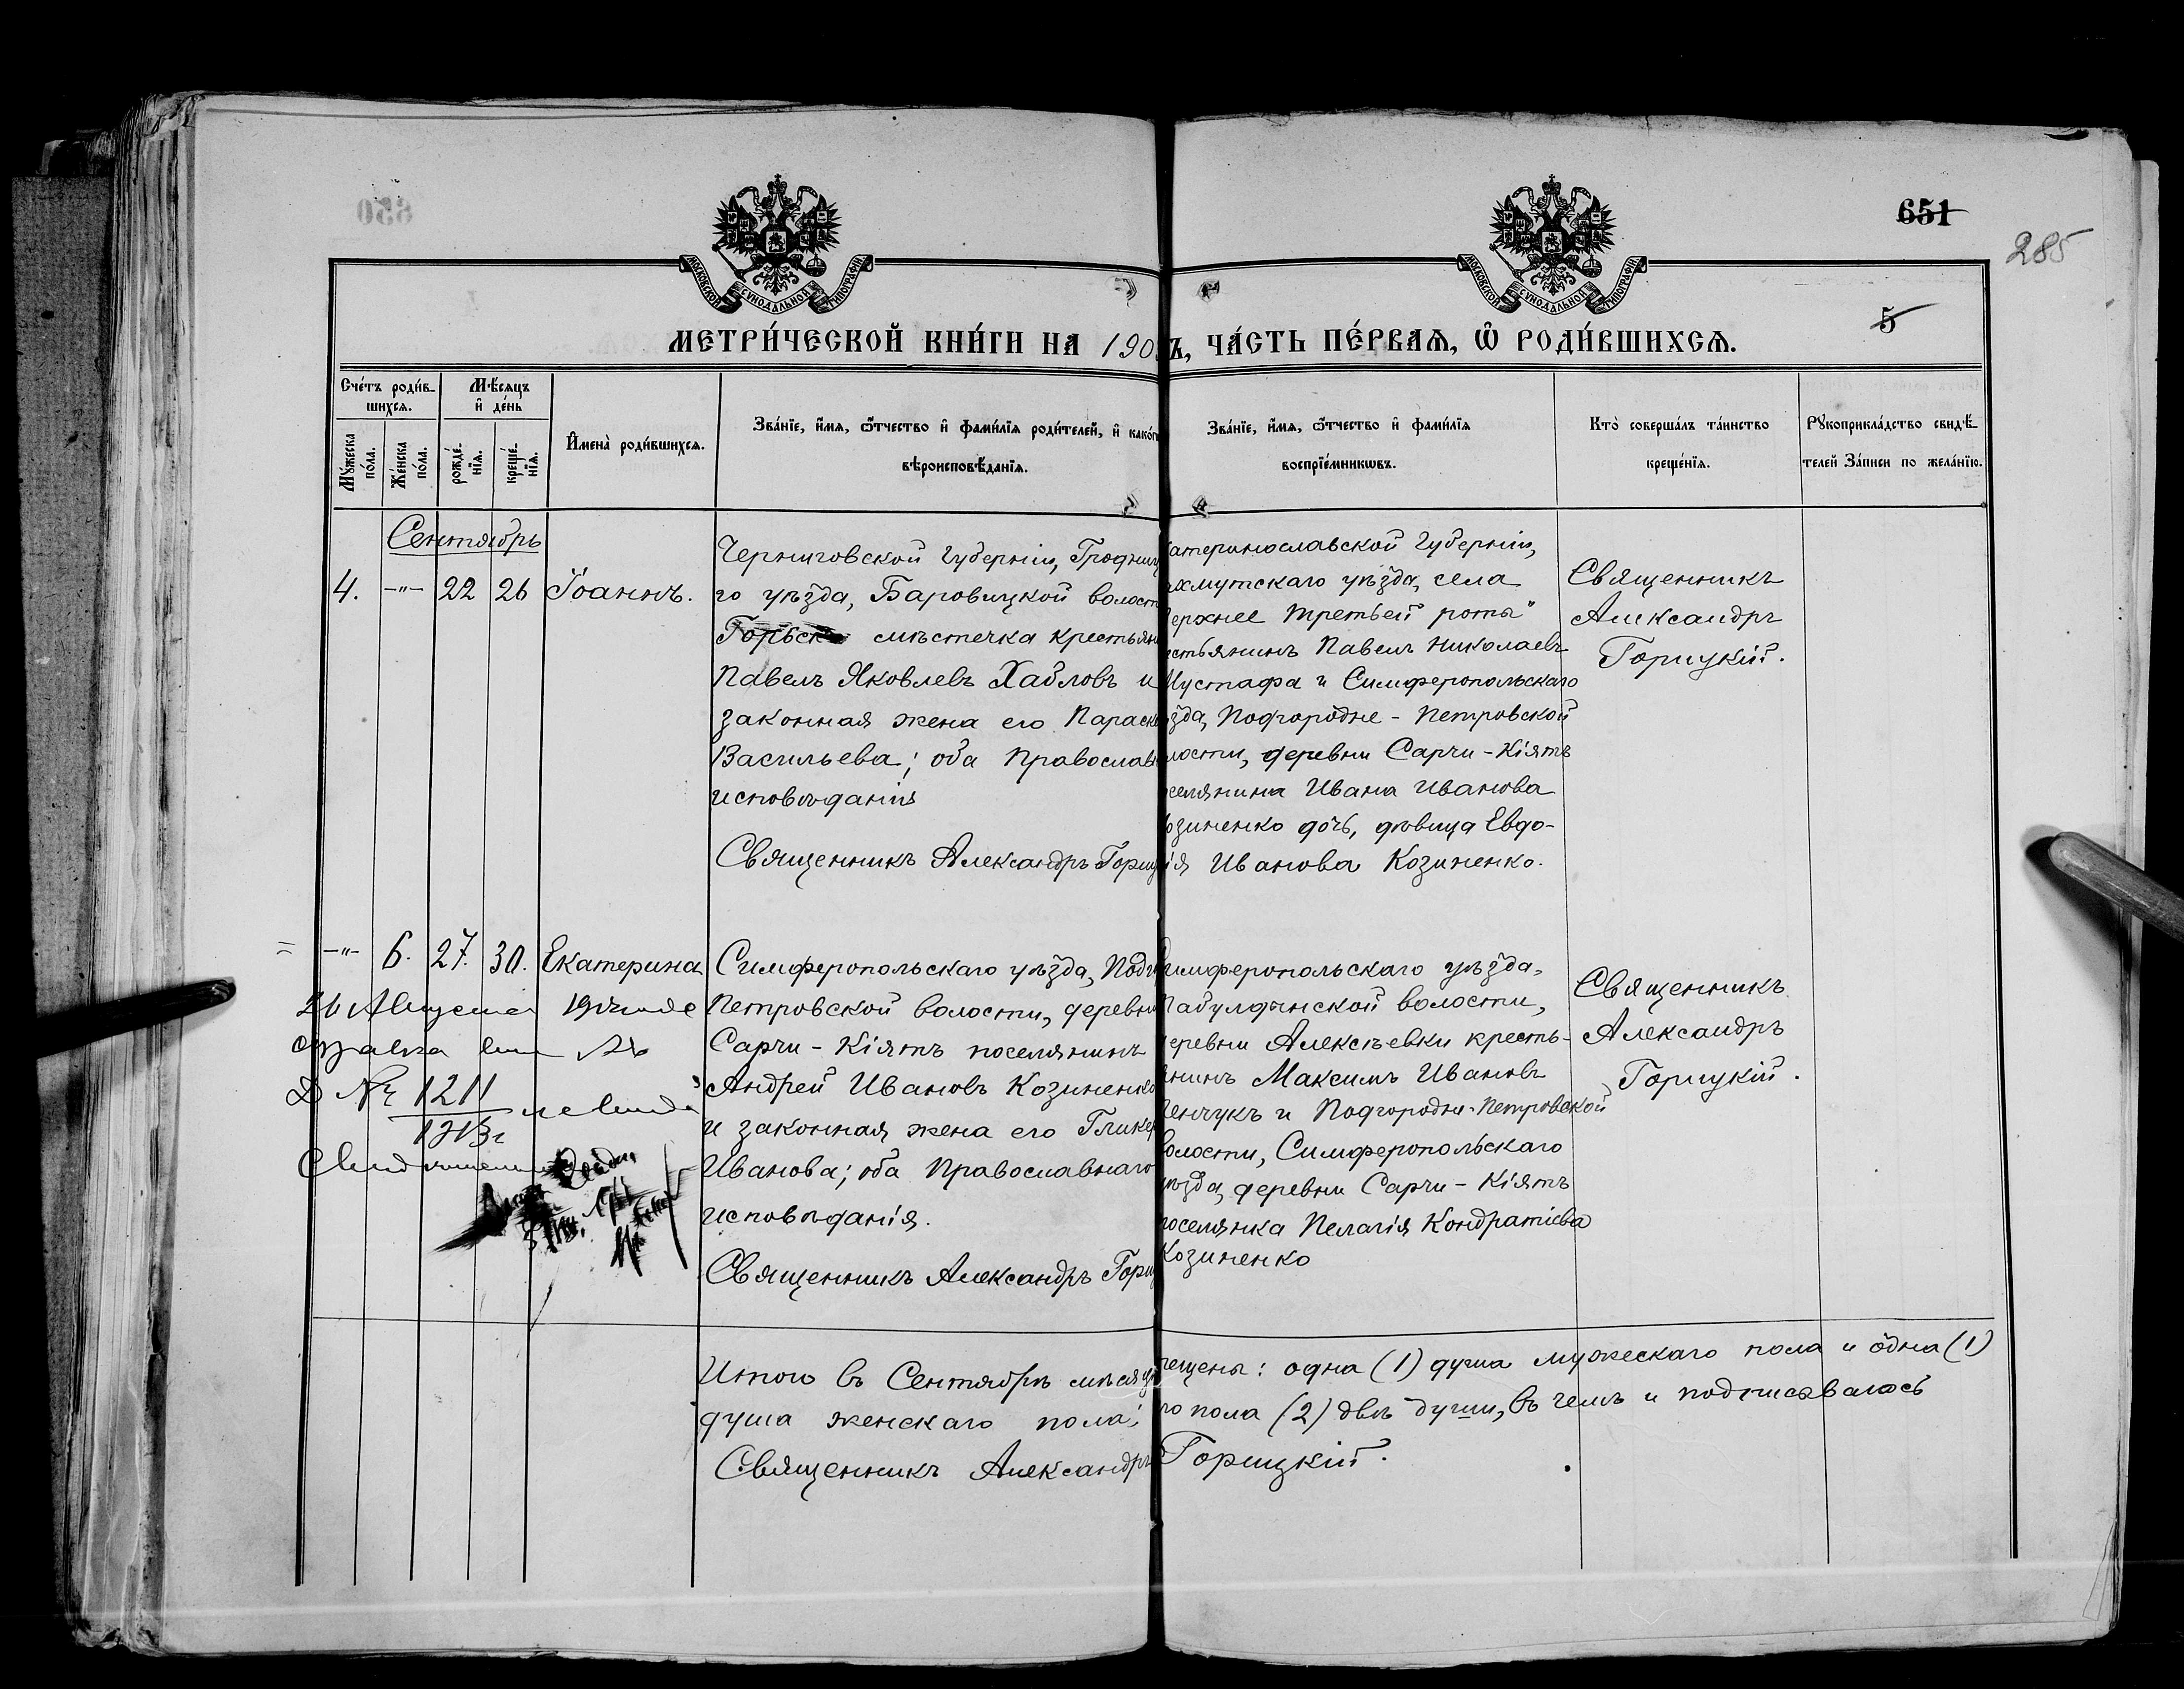 651
285
5
МОСКОВСКОЙ СѴНОДАЛЬНОЙ ТИПОГРАФІИ
МОСКОВСКОЙ СѴНОДАЛЬНОЙ ТИПОГРАФІИ
МЕТРИ́ЧЕСКОЙ КНИ́ГИ НА 190 Ъ, ЧА́СТЬ ПЕ́РВАѦ, Ѡ҆ РОДИ́ВШИХСѦ.
Сче́тъ роди́в-
шихсѧ.
Мꙋ́жеска по́ла.
Же́нска по́ла.
Мѣ́сѧцъ
и҆ де́нь
рожде́-нїѧ.
креще́-нїѧ.
И҆мена̀ роди́вшихсѧ.
Зва́нїе, и҆́мѧ, ѻ҆́тчество и҆ фами́лїѧ роди́телей, и҆ како́г
вѣроисповѣ́данїѧ.
Зва́нїе, и҆́мѧ, ѻ҆́тчество и҆ фами́лїѧ
воспрїе́мникѡвъ.
Кто̀ соверша́лъ та́инство
креще́нїѧ.
Рꙋкоприкла́дство свидѣ́-
телей За́писи по жела́нїю.
Сентябрь
4. -"- 22 26 Іоаннъ.
Черниговской губерніи, Гродниц
го уѣзда, Баровицкой волост
Горьск мѣстечка крестьян
Павелъ Яковлевъ Хабловъ и
законная жена его Параске
Васильева; оба Православ
исповѣданія
Священникъ Александръ Гориц
катеринославской губерніи,
ахмутскаго уѣзда, села
ерхнее третьей роты"
естьянинъ Павелъ Николаевъ
Мустафа и Симферопольскаго
ѣзда, Подгородне-Петровской
лости, деревни Сарчи-Кіятъ
селянина Ивана Иванова
озиненко дочь, дѣвица Евдо-
ія Иванова Козиненко.
Священникъ
Александръ
Горицкій.
-"- 6. 27. 30. Екатерина
Симферопольскаго уѣзда, Подг
Петровской волости, деревн
Сарчи-Кіятъ поселянинъ
Андрей Ивановъ Козиненко
и законная жена его Глике
Иванова; оба Православнаго
исповѣданія.
Священникъ Александръ Гори
имферопольскаго уѣзда,
Табулдынской волости,
еревни Алексѣевки кресть-
янинъ Максимъ Ивановъ
енчукъ и Подгородне-Петровской
волости, Симферопольскаго
уѣзда, деревни Сарчи-Кіятъ
поселянка Пелагія Кондратіева
Козиненко
Священникъ
Александръ
Горицкій.
26 Августа
№ 1211
Итого въ Сентябрѣ мѣсяц рещены: одна (1) душа мужескаго пола и одна (1)
душа женскаго пола; го пола (2) двѣ души, въ чемъ и подписываюсь
Священникъ Александръ Горицкій.